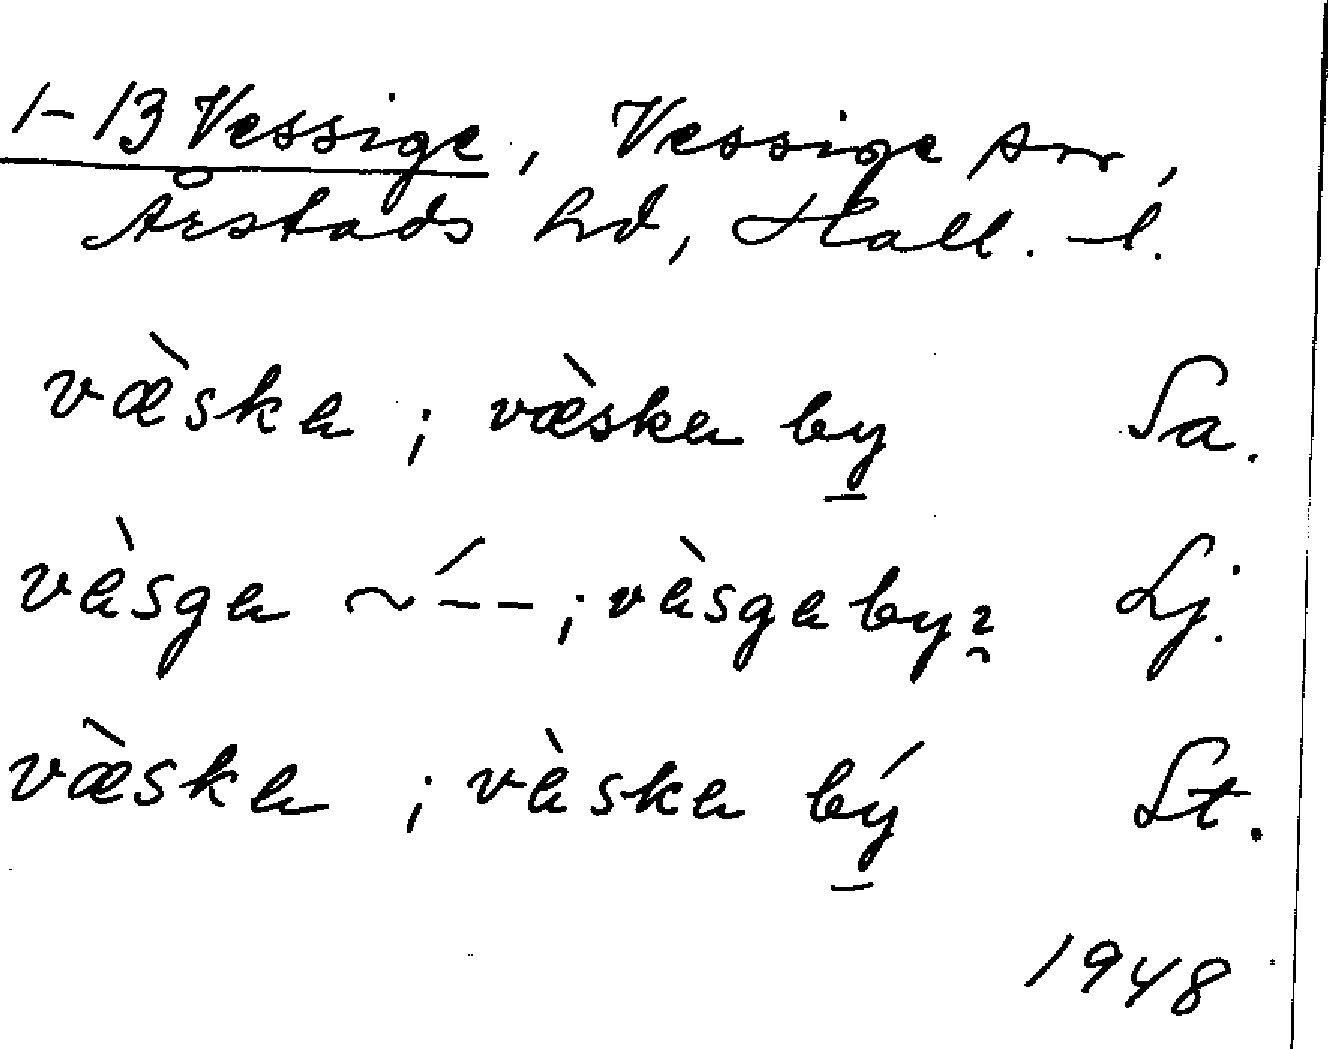 1-13 Vessige, Vessige sn,
Årstads hd, Hall. l.
væ̀ska ; væ̀ska by̱ Sa.
vàsga ~ ́-- ; vàsgaby₂ Lj.
væ̀ska ; vàska bý̱ St.
1948